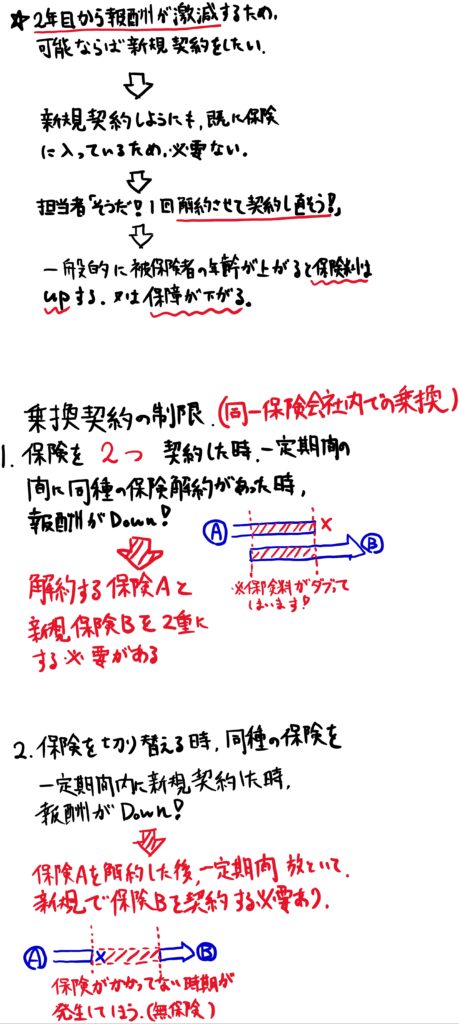 ☆2年目から報酬が激減するため、
可能ならば新規契約をしたい。
新規契約しようにも、既に保険
に入っているため、必要ない。
担当者「そうだ！1回解約させて契約し直そう！」
一般的に被保険者の年齢が上がると保険料は
upする。又は保障が下がる。
乗換契約の制限.(同一保険会社内での乗換)
1. 保険を 2つ 契約した時、一定期間の
間に同種の保険解約があった時、
報酬がDown!
A × B
解約する保険Aと
新規保険Bを2重に
する必要がある
※保険料がダブって
しまいます!
2. 保険を切り替える時、同種の保険を
一定期間内に新規契約した時、
報酬がDown!
保険Aを解約した後、一定期間 放といて、
新規で保険Bを契約する必要あり。
A × B
保険がかかってない時期が
発生してしまう。(無保険)